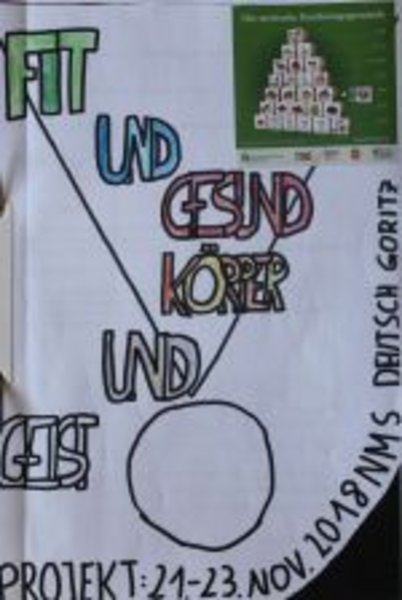 FIT
UND
GESUND
KÖRPER
UND
GEIST
PROJEKT: 21.-23. NOV. 2018 NMS DEUTSCH GORITZ